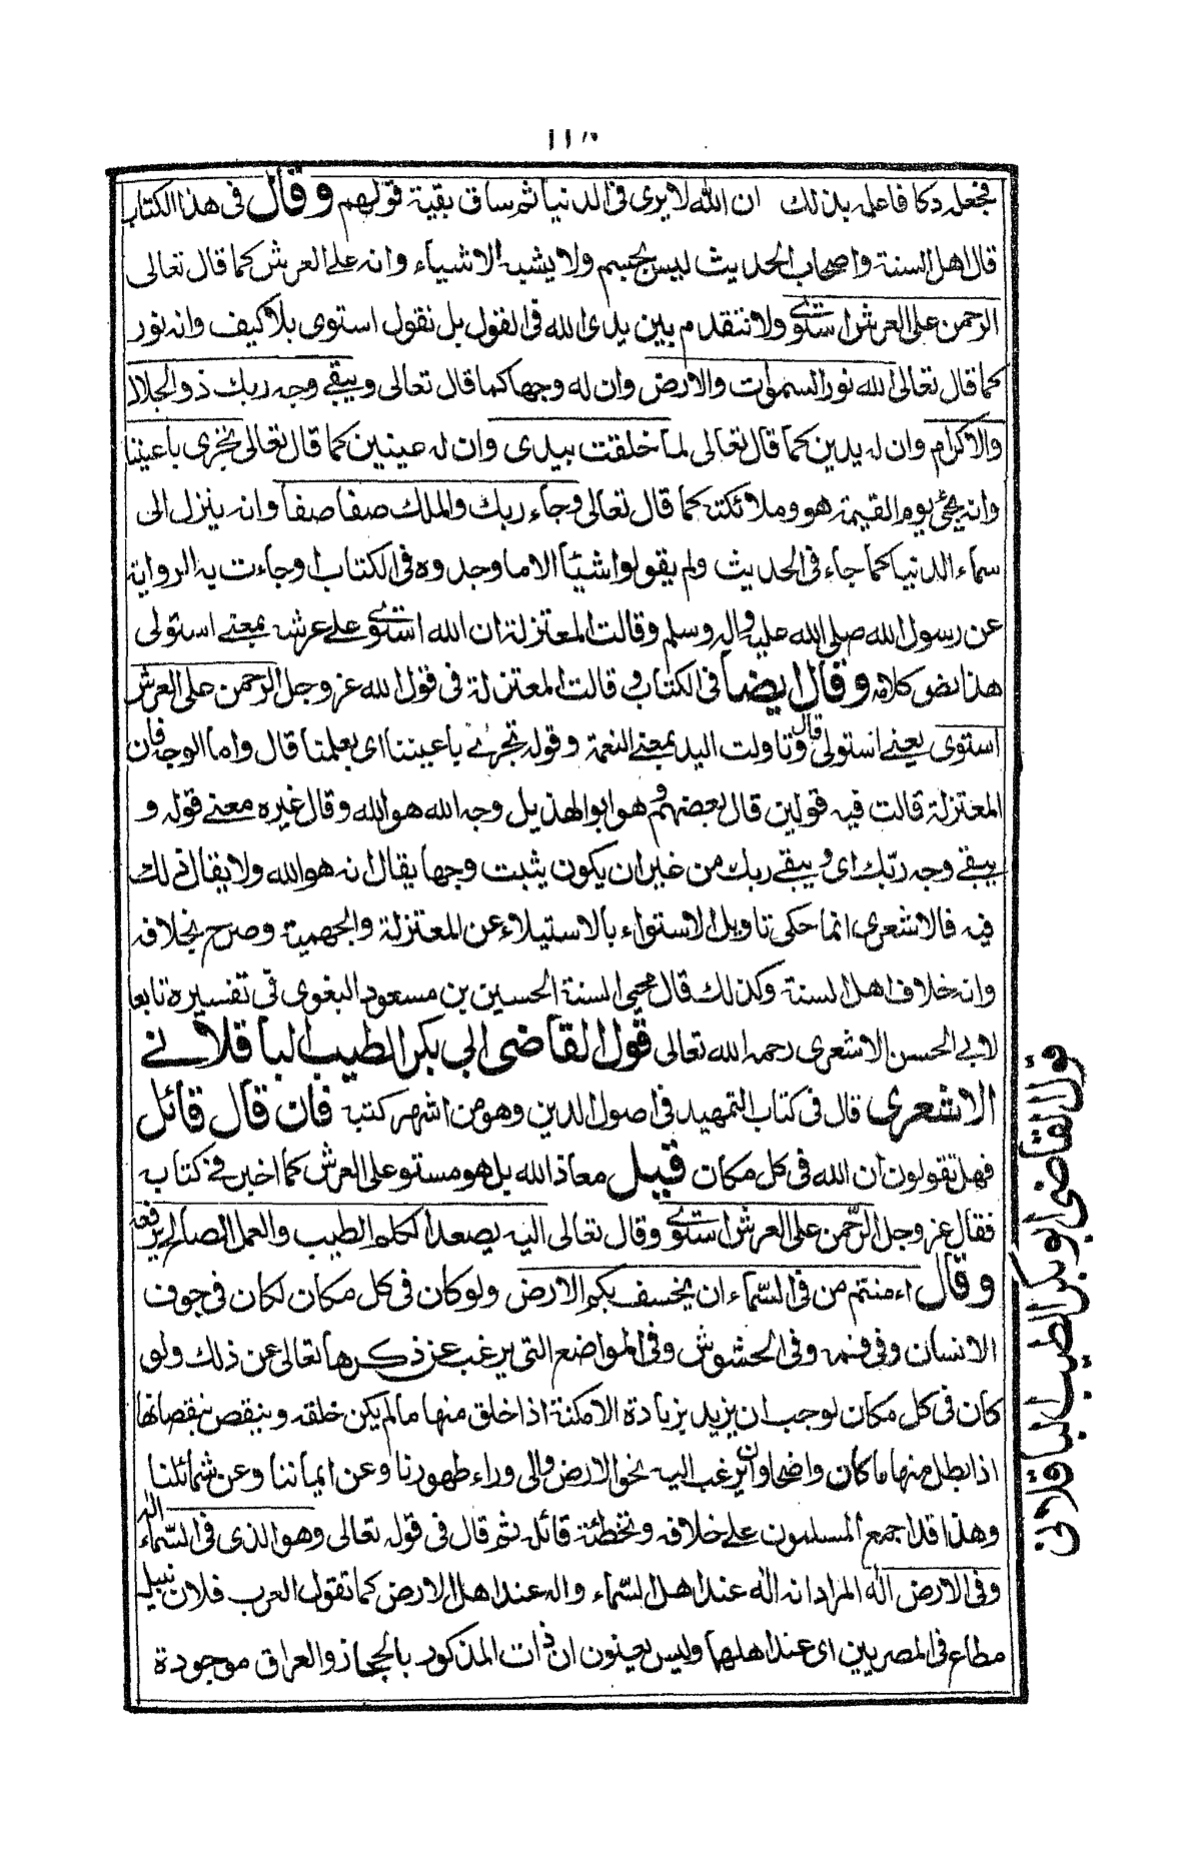 ١١٣
فجعله دكا فاعلم بذلك ان الله لا يرى فى الدنيا ثم ساق بقية قولهم وقال فى هذا الكتاب
قال اهل السنة واصحاب الحديث ليس بجسم ولا يشبه الاشياء وانه على العرش كما قال تعالى
الرحمن على العرش استوى ولا نتقدم بين يدى الله فى القول بل نقول استوى بلا كيف وانه نور
كما قال تعالى الله نور السموات والارض وان له وجها كما قال تعالى ويبقى وجه ربك ذو الجلال
والاكرام وان له يدين كما قال تعالى لما خلقت بيدى وان له عينين كما قال تعالى تجرى باعيننا
وانه يجئ يوم القيمة هو وملائكته كما قال تعالى وجاء ربك والملك صفا صفا وانه ينزل الى
سماء الدنيا كما جاء فى الحديث ولم يقولوا شيئا الا ما وجدوه فى الكتاب او جاءت به الرواية
عن رسول الله صلى الله عليه واله وسلم وقالت المعتزلة ان الله استوى على عرشه بمعنى استولى
هذا نص كلامه وقال ايضا فى الكتاب وقالت المعتزلة فى قول الله عز وجل الرحمن على العرش
استوى يعنى استولى قال وتاولت اليد بمعنى النعمة وقوله تجرى باعيننا اى بعلمنا قال واما الوجه فان
المعتزلة قالت فيه قولين قال بعضهم وهو ابو الهذيل وجه الله هو الله وقال غيره معنى قوله و
يبقى وجه ربك اى ويبقى ربك من غير ان يكون يثبت وجها يقال انه هو الله ولا يقال ذلك
فيه فالاشعرى انما حكى تاويل الاستواء بالاستيلاء عن المعتزلة والجهمية وصرح بخلافه
وانه خلاف اهل السنة وكذلك قال محيى السنة الحسين بن مسعود البغوى فى تفسيره تابعا
لابى الحسن الاشعرى رحمه الله تعالى قول القاضى ابى بكر الطيب الباقلانى
الاشعرى قال فى كتاب التمهيد فى اصول الدين وهو من اشهر كتبه فان قال قائل
فهل تقولون ان الله فى كل مكان قيل معاذ الله بل هو مستو على العرش كما اخبر فى كتابه
فقال عز وجل الرحمن على العرش استوى وقال تعالى اليه يصعد الكلم الطيب والعمل الصالح يرفعه
وقال ءامنتم من فى السماء ان يخسف بكم الارض ولو كان فى كل مكان لكان فى جوف
الانسان وفى فمه وفى الحشوش وفى المواضع التى يرغب عن ذكرها تعالى عن ذلك ولو
كان فى كل مكان لوجب ان يزيد بزيادة الامكنة اذا خلق منها ما لم يكن خلقه وينقص بنقصانها
اذا بطل منها ما كان واضحا وان يرغب اليه نحو الارض والى وراء ظهورنا وعن ايماننا وعن شمائلنا
وهذا قد اجمع المسلمون على خلافه وتخطئة قائله ثم قال فى قوله تعالى وهو الذى فى السماء اله
وفى الارض اله المراد انه اله عند اهل السماء واله عند اهل الارض كما تقول العرب فلان نبيل
مطاع فى المصريين اى عند اهلها وليس يعنون ان ذات المذكور بالحجاز والعراق موجودة
قول القاضى ابو بكر الطيب الباقلانى